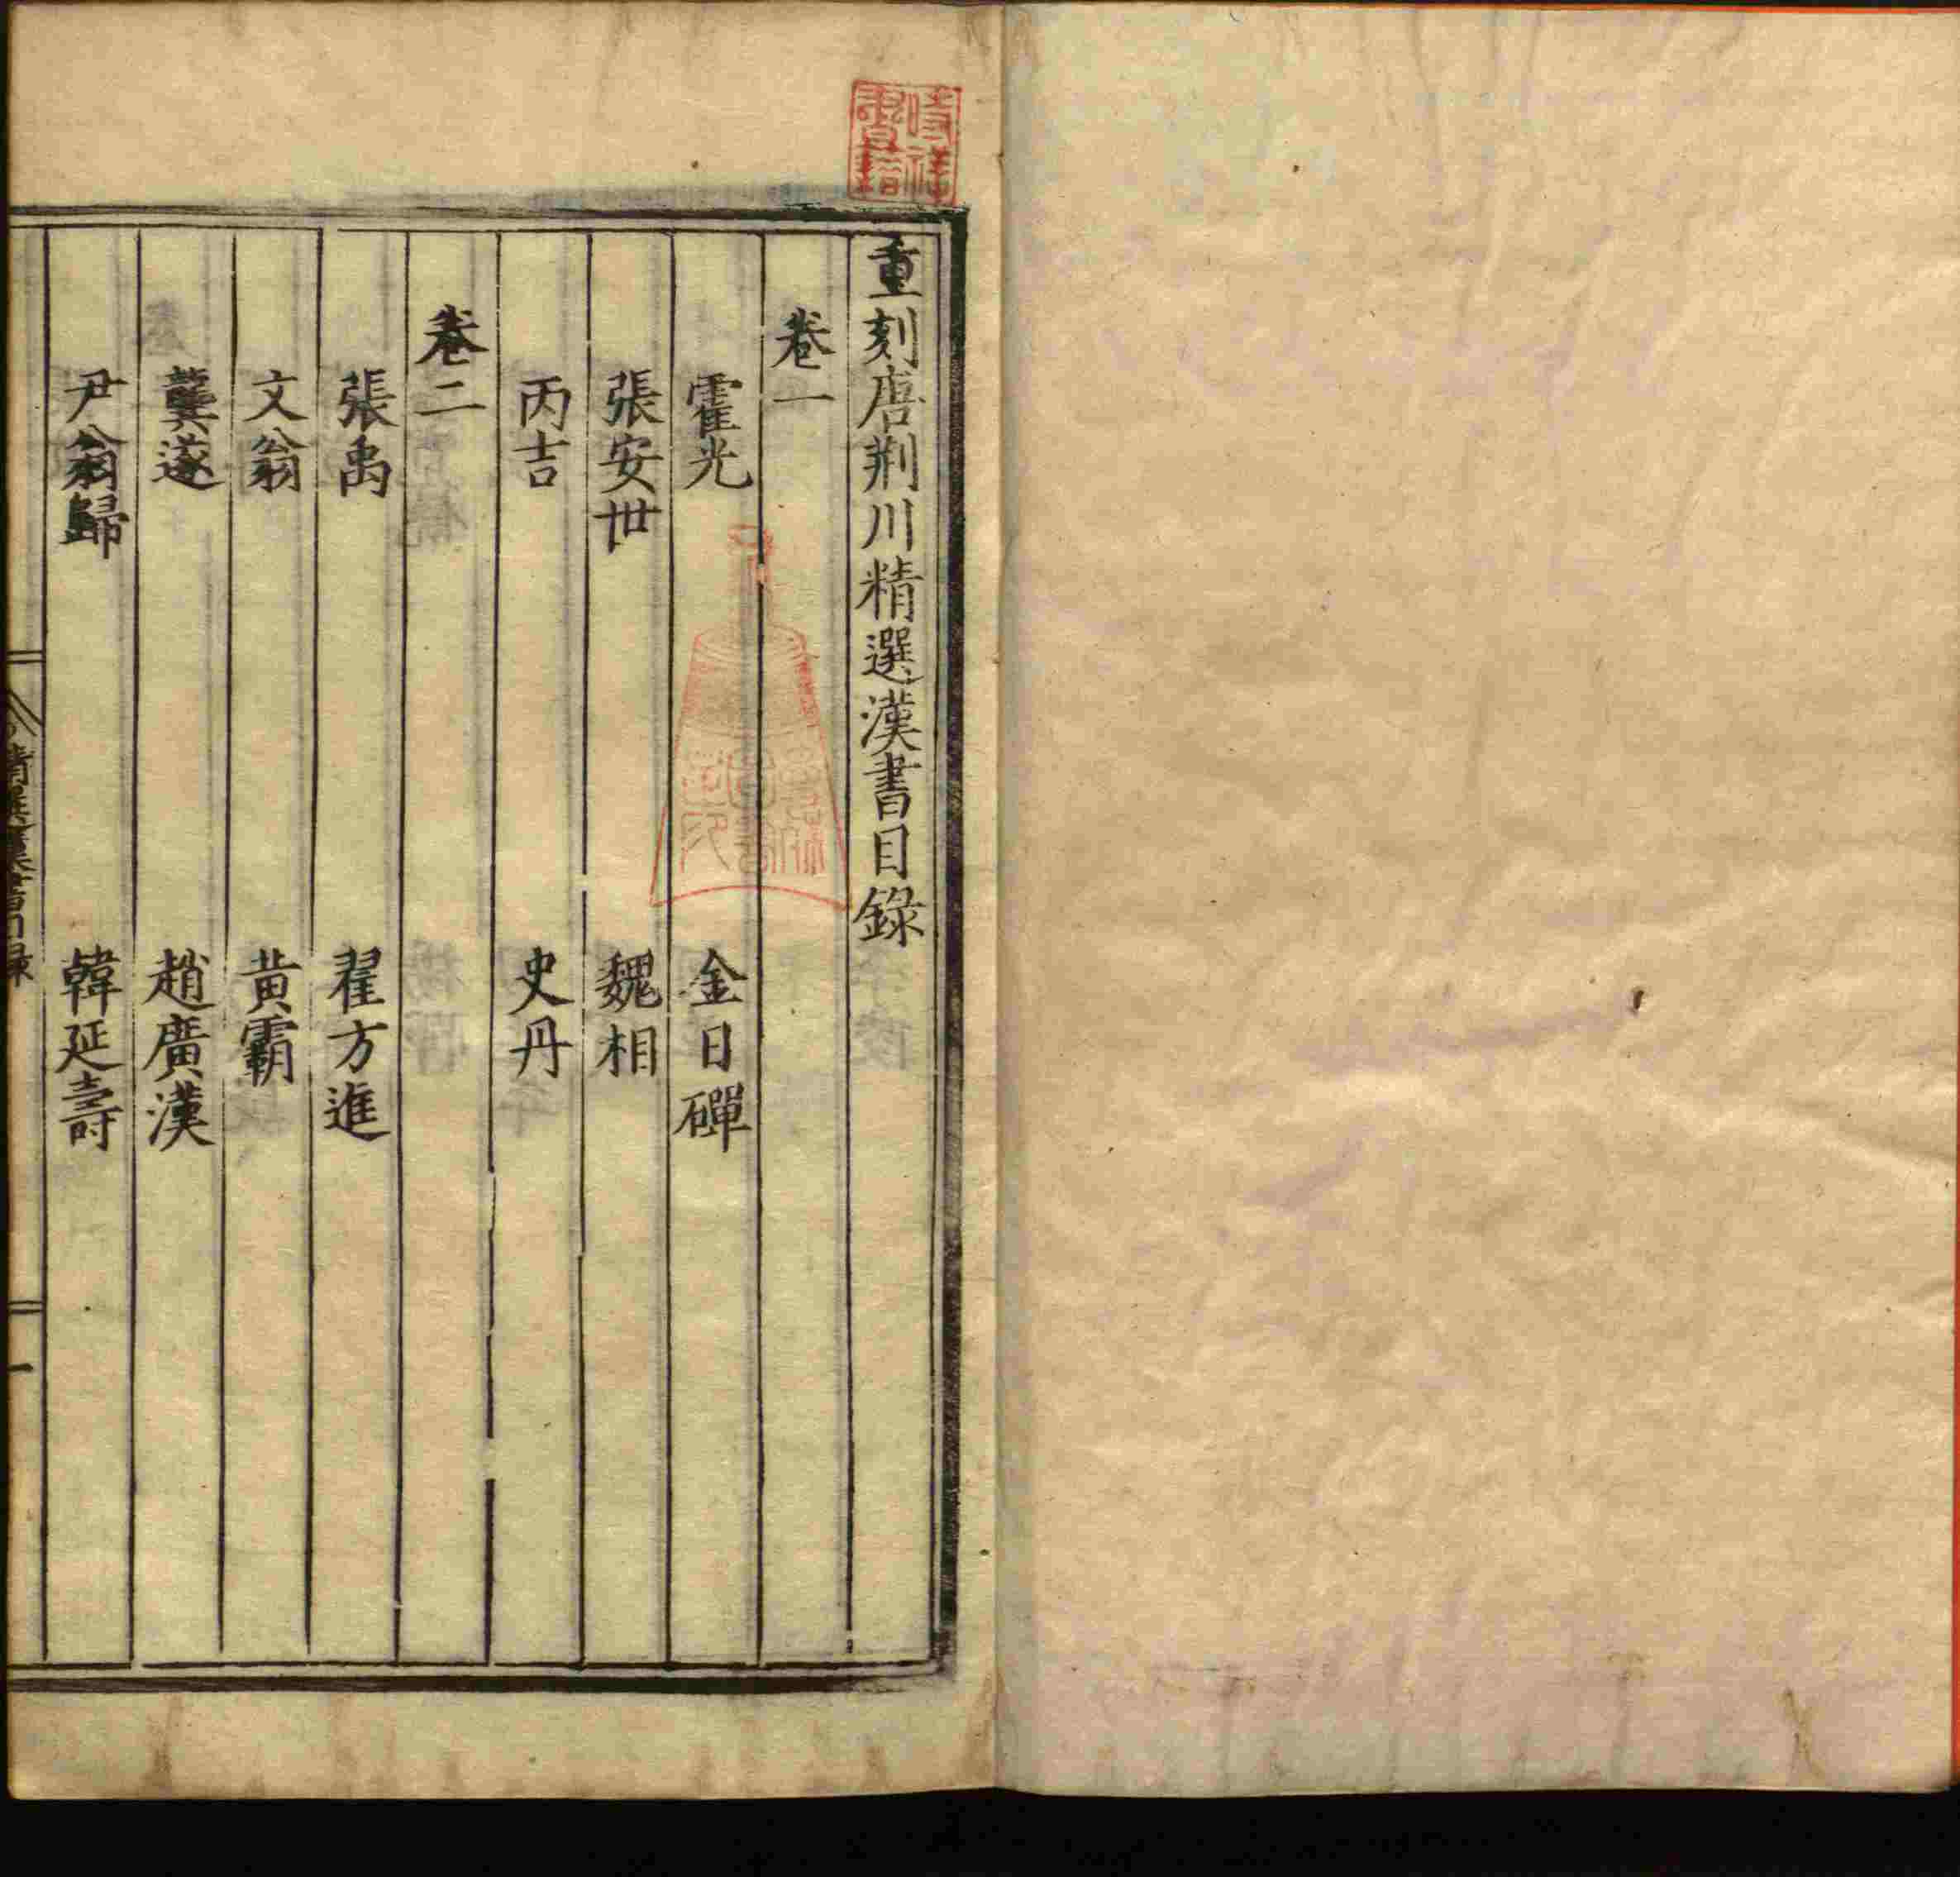 重刻唐荆川精選漢書目錄
卷一
霍光 金日磾
張安世 魏相
丙吉 史丹
卷二
張禹 翟方進
文翁 黃霸
龔遂 趙廣漢
尹翁歸 韓延壽
精選漢書目録
一